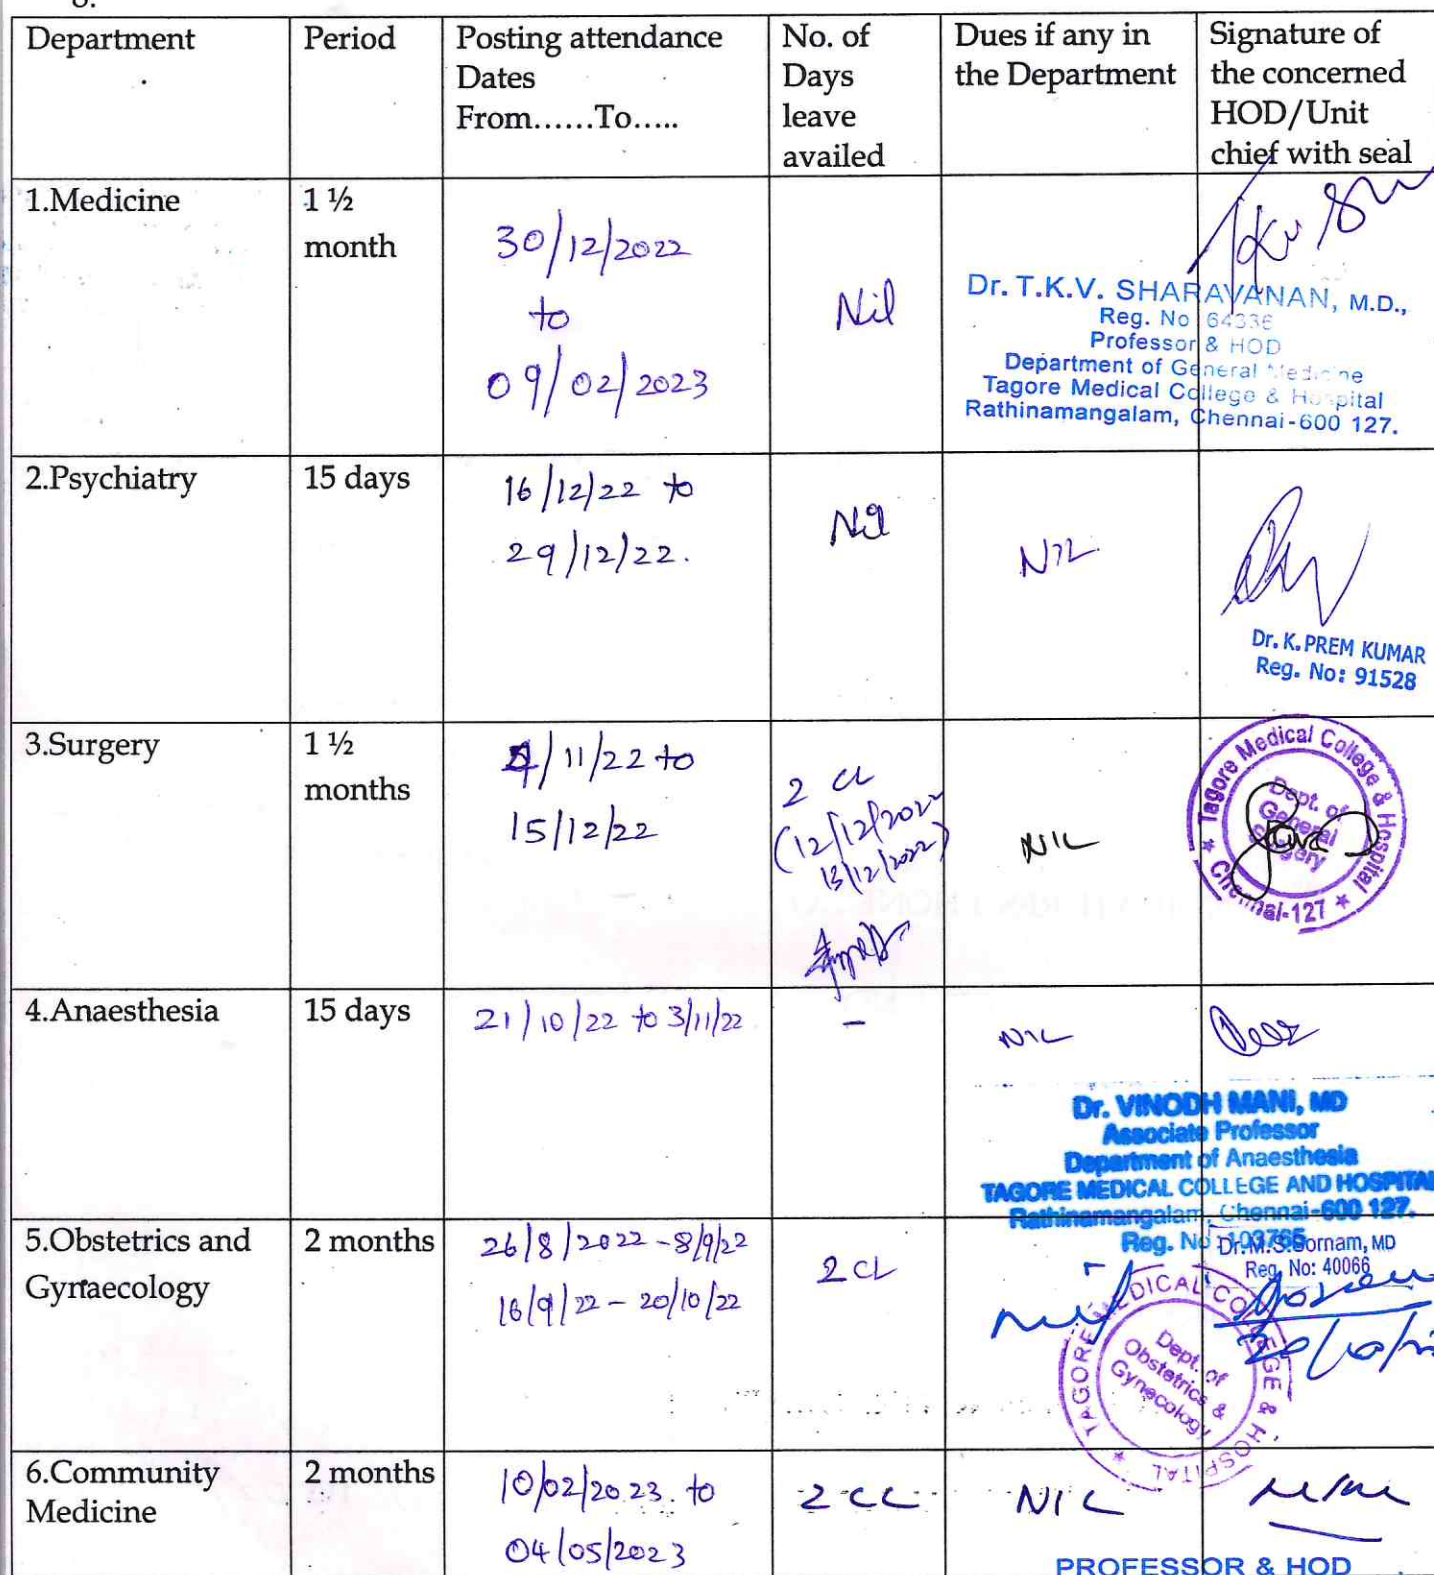 Department
Period
Posting attendance
Dates
From......To.....
No. of
Days
leave
availed
Dues if any in
the Department
Signature of
the concerned
HOD/Unit
chief with seal
1.Medicine
1 ½
month
30/12/2022
to
09/02/2023
Nil
Dr. T.K.V. SHARAVANAN, M.D.,
Reg. No 64336
Professor & HOD
Department of General Medicine
Tagore Medical College & Hospital
Rathinamangalam, Chennai-600 127.
2.Psychiatry
15 days
16/12/22 to
29/12/22.
Nil
NIL
Dr. K. PREM KUMAR
Reg. No: 91528
3.Surgery
1 ½
months
4/11/22 to
15/12/22
2 CL
(12/12/2022
13/12/2022)
NIL
Tagore Medical College & Hospital
Chennai-127
Dept. of
General
Surgery
4.Anaesthesia
15 days
21/10/22 to 3/11/22
-
NIL
Dr. VINODH MANI, MD
Associate Professor
Department of Anaesthesia
TAGORE MEDICAL COLLEGE AND HOSPITAL
Rathinamangalam, Chennai-600 127.
Reg. No : 103765
5.Obstetrics and
Gynaecology
2 months
26/8/2022 - 8/9/22
16/9/22 - 20/10/22
2 CL
Nil
Dr. M.S. Sornam, MD
Reg. No: 40066
TAGORE MEDICAL COLLEGE & HOSPITAL
Dept. of
Obstetrics &
Gynecology
6.Community
Medicine
2 months
10/02/2023 to
04/05/2023
2 CL
NIL
PROFESSOR & HOD